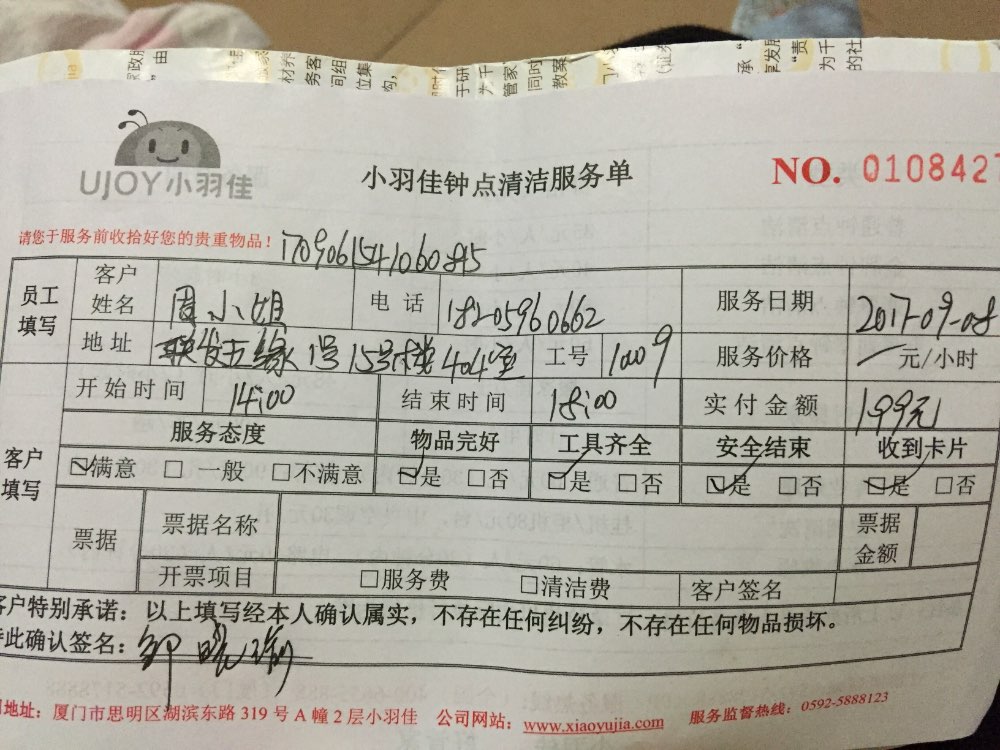 UJOY小羽佳
小羽佳钟点清洁服务单
NO. 0108427
请您于服务前收拾好您的贵重物品！
员工填写 客户姓名 周小姐 电话 18205960662 服务日期 2017-09-08
地址 联发五缘1号15号楼404室 工号 10009 服务价格 元/小时
开始时间 14:00 结束时间 18:00 实付金额 199元
客户填写 服务态度 物品完好 工具齐全 安全结束 收到卡片
☑满意 □一般 □不满意 ☑是 □否 ☑是 □否 ☑是 □否 ☑是 □否
票据 票据名称 票据金额
开票项目 □服务费 □清洁费 客户签名
客户特别承诺：以上填写经本人确认属实，不存在任何纠纷，不存在任何物品损坏。
此确认签名：
地址：厦门市思明区湖滨东路 319 号 A 幢 2 层小羽佳 公司网站：www.xiaoyujia.com 服务监督热线：0592-5888123